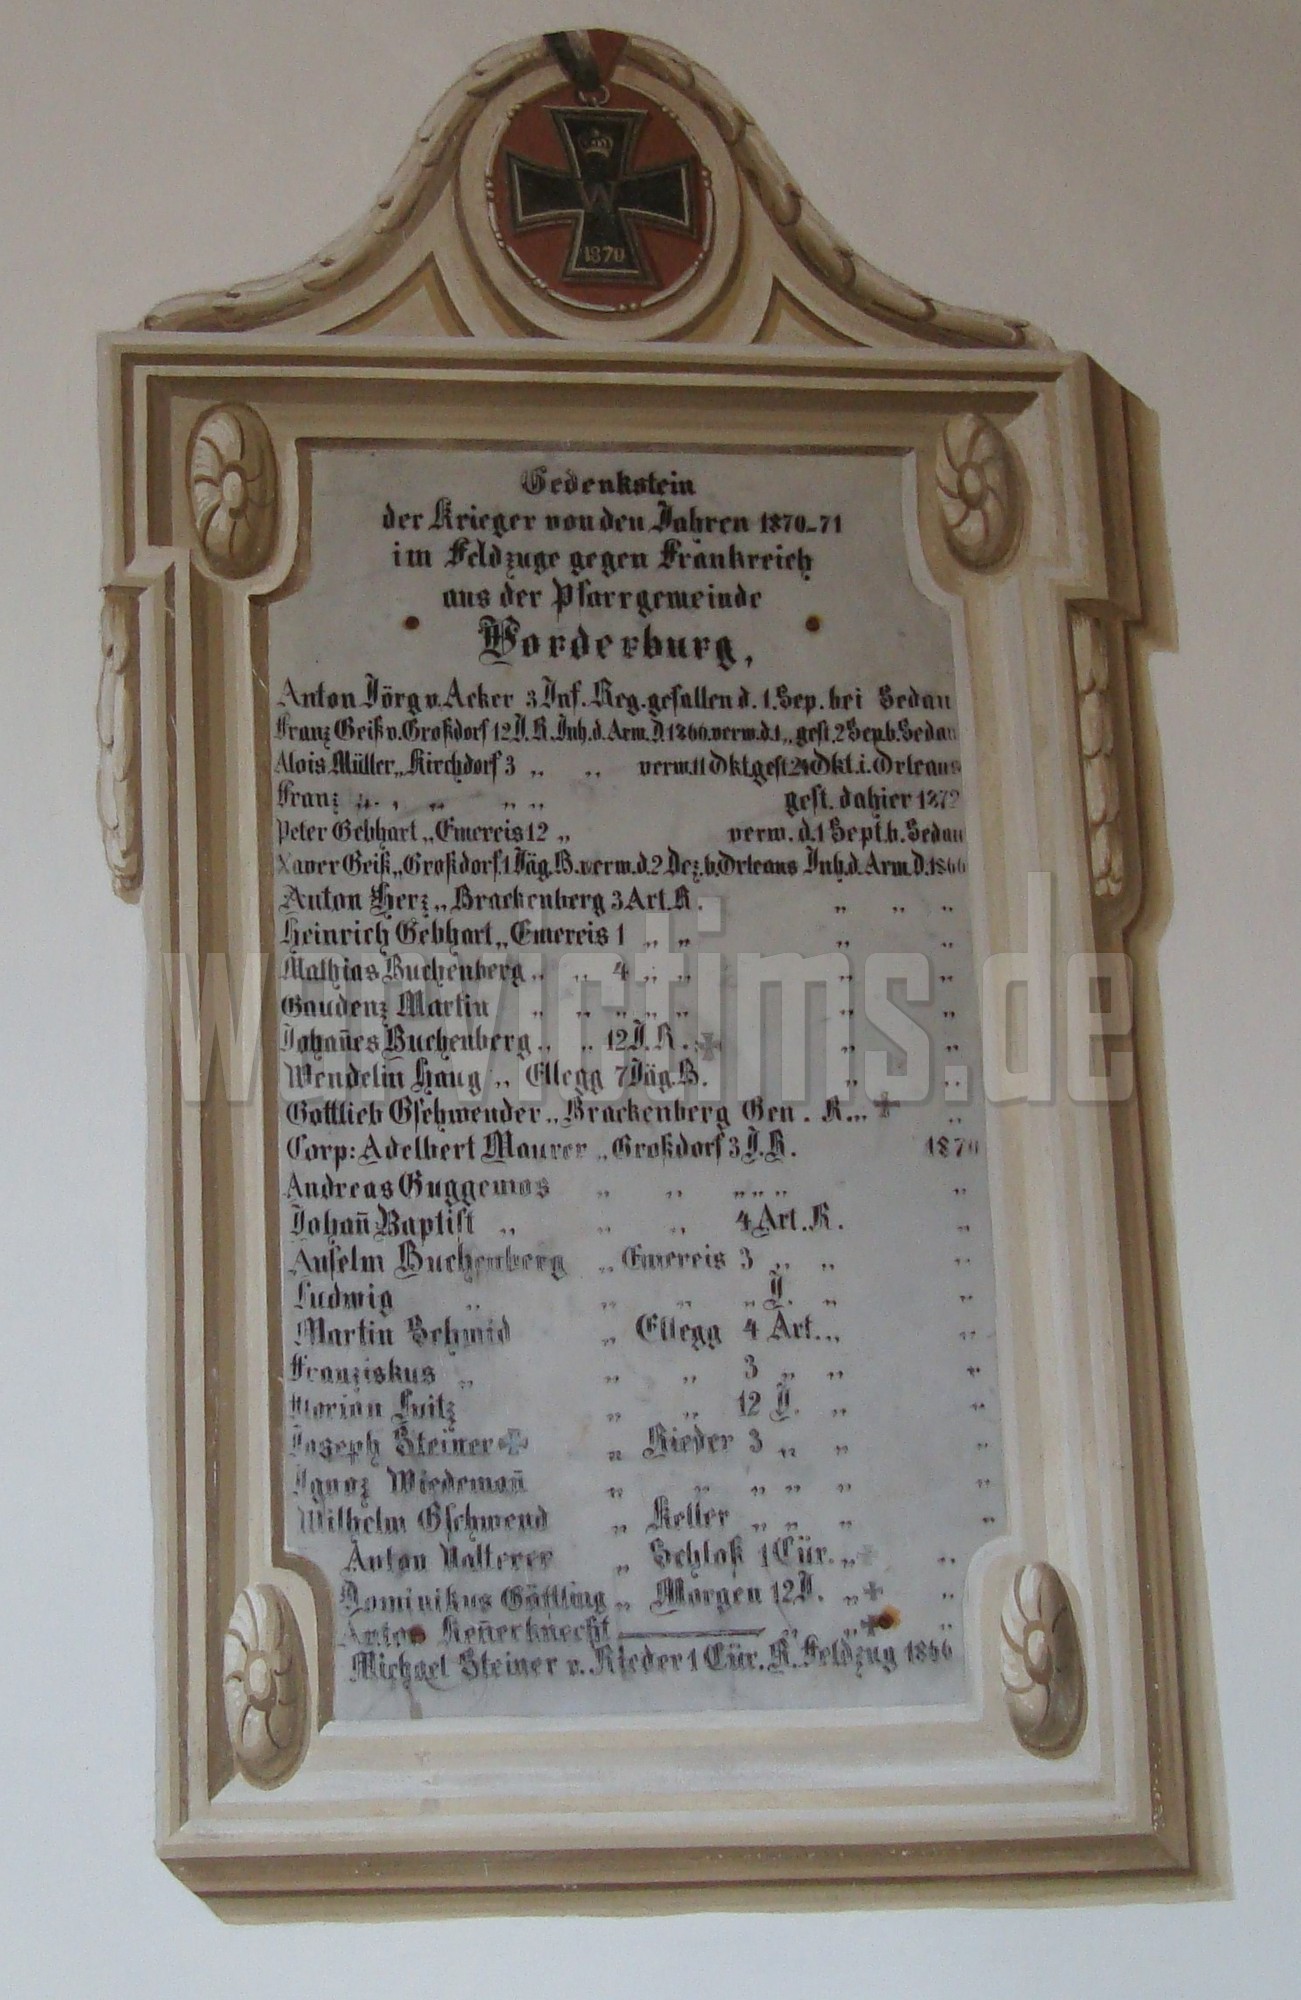 W
1870
Gedenkstein
der Krieger von den Jahren 1870-71
im Feldzuge gegen Frankreich
aus der Pfarrgemeinde
Vorderburg,
Anton Jörg v. Acker 3 Inf. Reg. gefallen d. 1. Sep. bei Sedan
Franz Geiß v. Großdorf 12 J. R. Inh. d. Arm. D. 1866. verw. d. 1 „ gest. 2 Sept. b. Sedan
Alois Müller „ Kirchdorf 3 „ „ verw. 11 Okt. gest. 24 Okt. i. Orleans
Franz „ „ „ „ „ gest. dahier 1872
Peter Gebhart „ Emereis 12 „ verw. d. 1 Sept. b. Sedan
Xaver Geiß „ Großdorf. 1 Jäg. B. verw. d. 2 Dez. b. Orleans Inh. d. Arm. D. 1866
Anton Herz „ Brackenberg 3 Art. R. „ „ „
Heinrich Gebhart „ Emereis 1 „ „ „ „
Mathias Buchenberg „ „ 4 „ „ „ „
Gaudenz Martin „ „ „ „ „ „ „
Johañes Buchenberg „ „ 12 J. R. „ „
Wendelin Haug „ Ellegg 7 Jäg. B. „ „
Gottlieb Gschwender „ Brackenberg Gen. R. „ „
Corp: Adelbert Maurer „ Großdorf 3 J. R. 1870
Andreas Guggemos „ „ „ „ „ „
Johañ Baptist „ „ „ 4 Art. R. „
Anselm Buchenberg „ Emereis 3 „ „ „
Ludwig „ „ „ „ J. „ „
Martin Schmid „ Ellegg 4 Art. „ „
Franziskus „ „ „ 3 „ „ „
Florian Luitz „ „ 12 J. „ „
Joseph Steiner „ Rieder 3 „ „ „
Ignaz Wiedemañ „ „ „ „ „ „
Wilhelm Gschwend „ Keller „ „ „ „
Anton „ Schloß 1 Cür. „ „
Dominikus Göttling „ Morgen 12 J. „ „
Anton Keñerknecht „ „ „
Michael Steiner v. Rieder 1 Cür. R. Feldzug 1866
warvictims.de